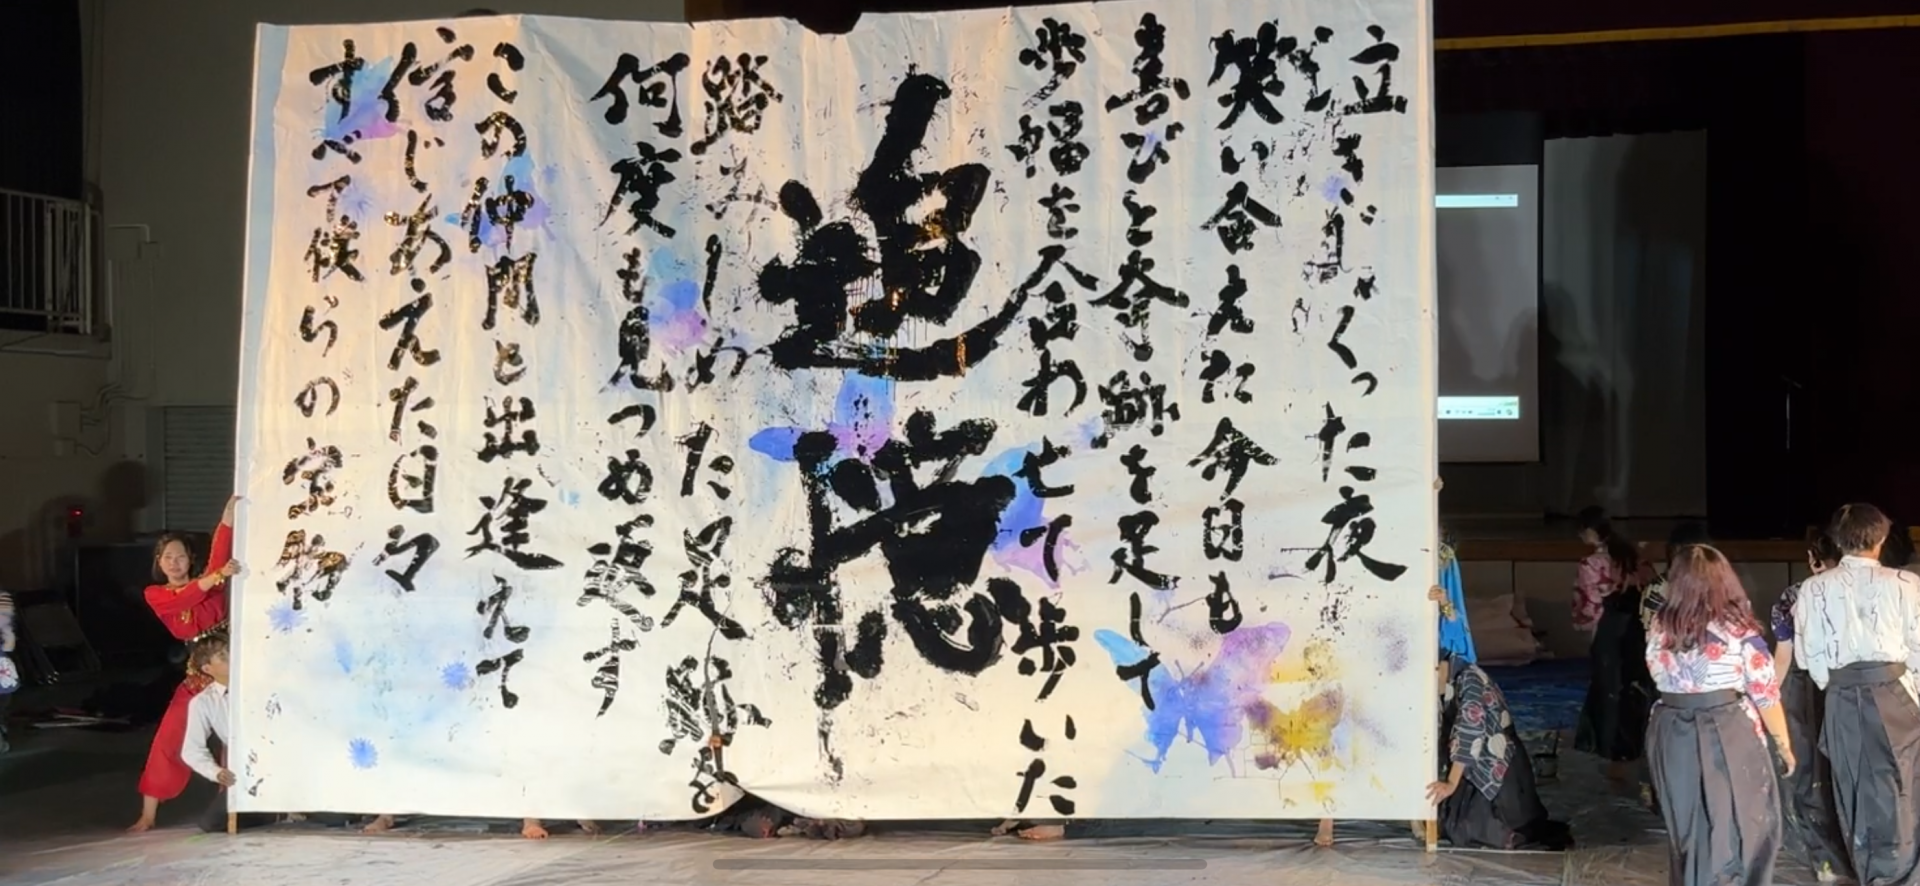 泣きじゃくった夜
笑い合えた今日も
喜びと奇跡を足して
歩幅を合わせて歩いた
追憶
踏みしめた足跡を
何度も見つめ返す
この仲間と出逢えて
信じあえた日々
すべて僕らの宝物